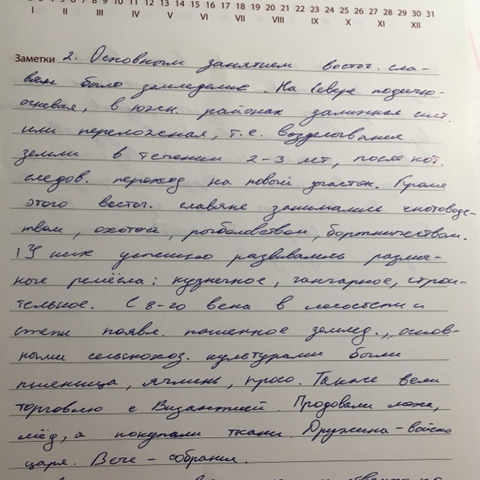 8 9 10 11 12 13 14 15 16 17 18 19 20 21 22 23 24 25 26 27 28 29 30 31
I II III IV V VI VII VIII IX X XI XII
Заметки 2. Основным занятием восточ. сла-
вян было земледелие. На севере подсечно-
огневая, в южн. районах залежная сист.
или переложная, т.е. возделывание
земли в течении 2-3 лет, после кот.
следов. переход на новый участок. Кроме
этого восточ. славяне занимались скотоводс-
твом, охотой, рыболовством, бортничеством.
У них успешно развивались различ-
ные ремёсла: кузнечное, гончарное, строи-
тельное. С 8-го века в лесостепи и
степи появл. пашенное землед., основ-
ными сельскохоз. культурами были
пшеница, ячмень, просо. Также вели
торговлю с Византией. Продовали меха,
мёд, а покупали ткани. Дружина - войско
царя. Вече - собрание.